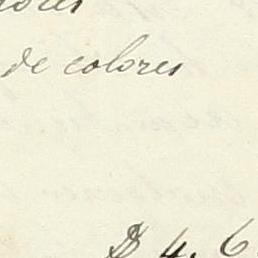 de colores
$ 4. 6